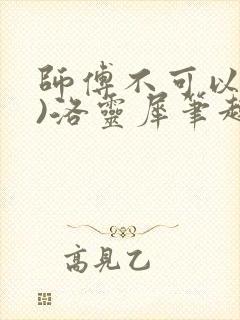 師傅不可以
)洛靈犀筆趣
高見乙